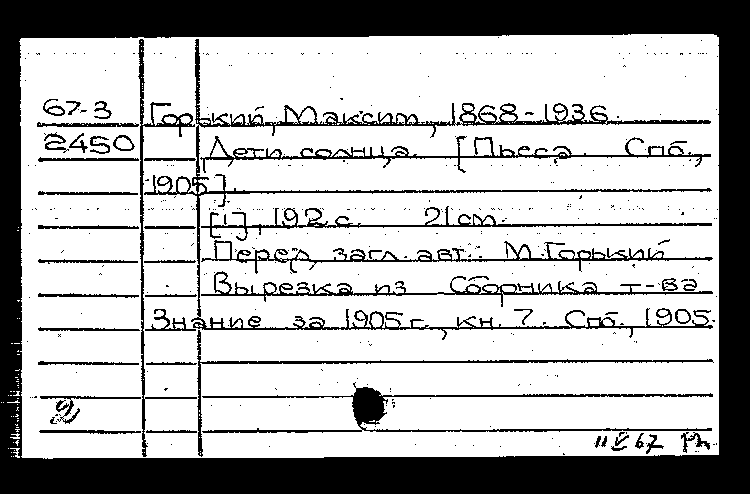 67-3 Горький, Максим, 1868-1936.
2450 Дети солнца. [Пьеса. Спб.,
1905].
[1], 192 с. 21 см.
Перед загл. авт.: М. Горький
Вырезка из Сборника т-ва
Знание за 1905 г., кн. 7. Спб., 1905.
2
67